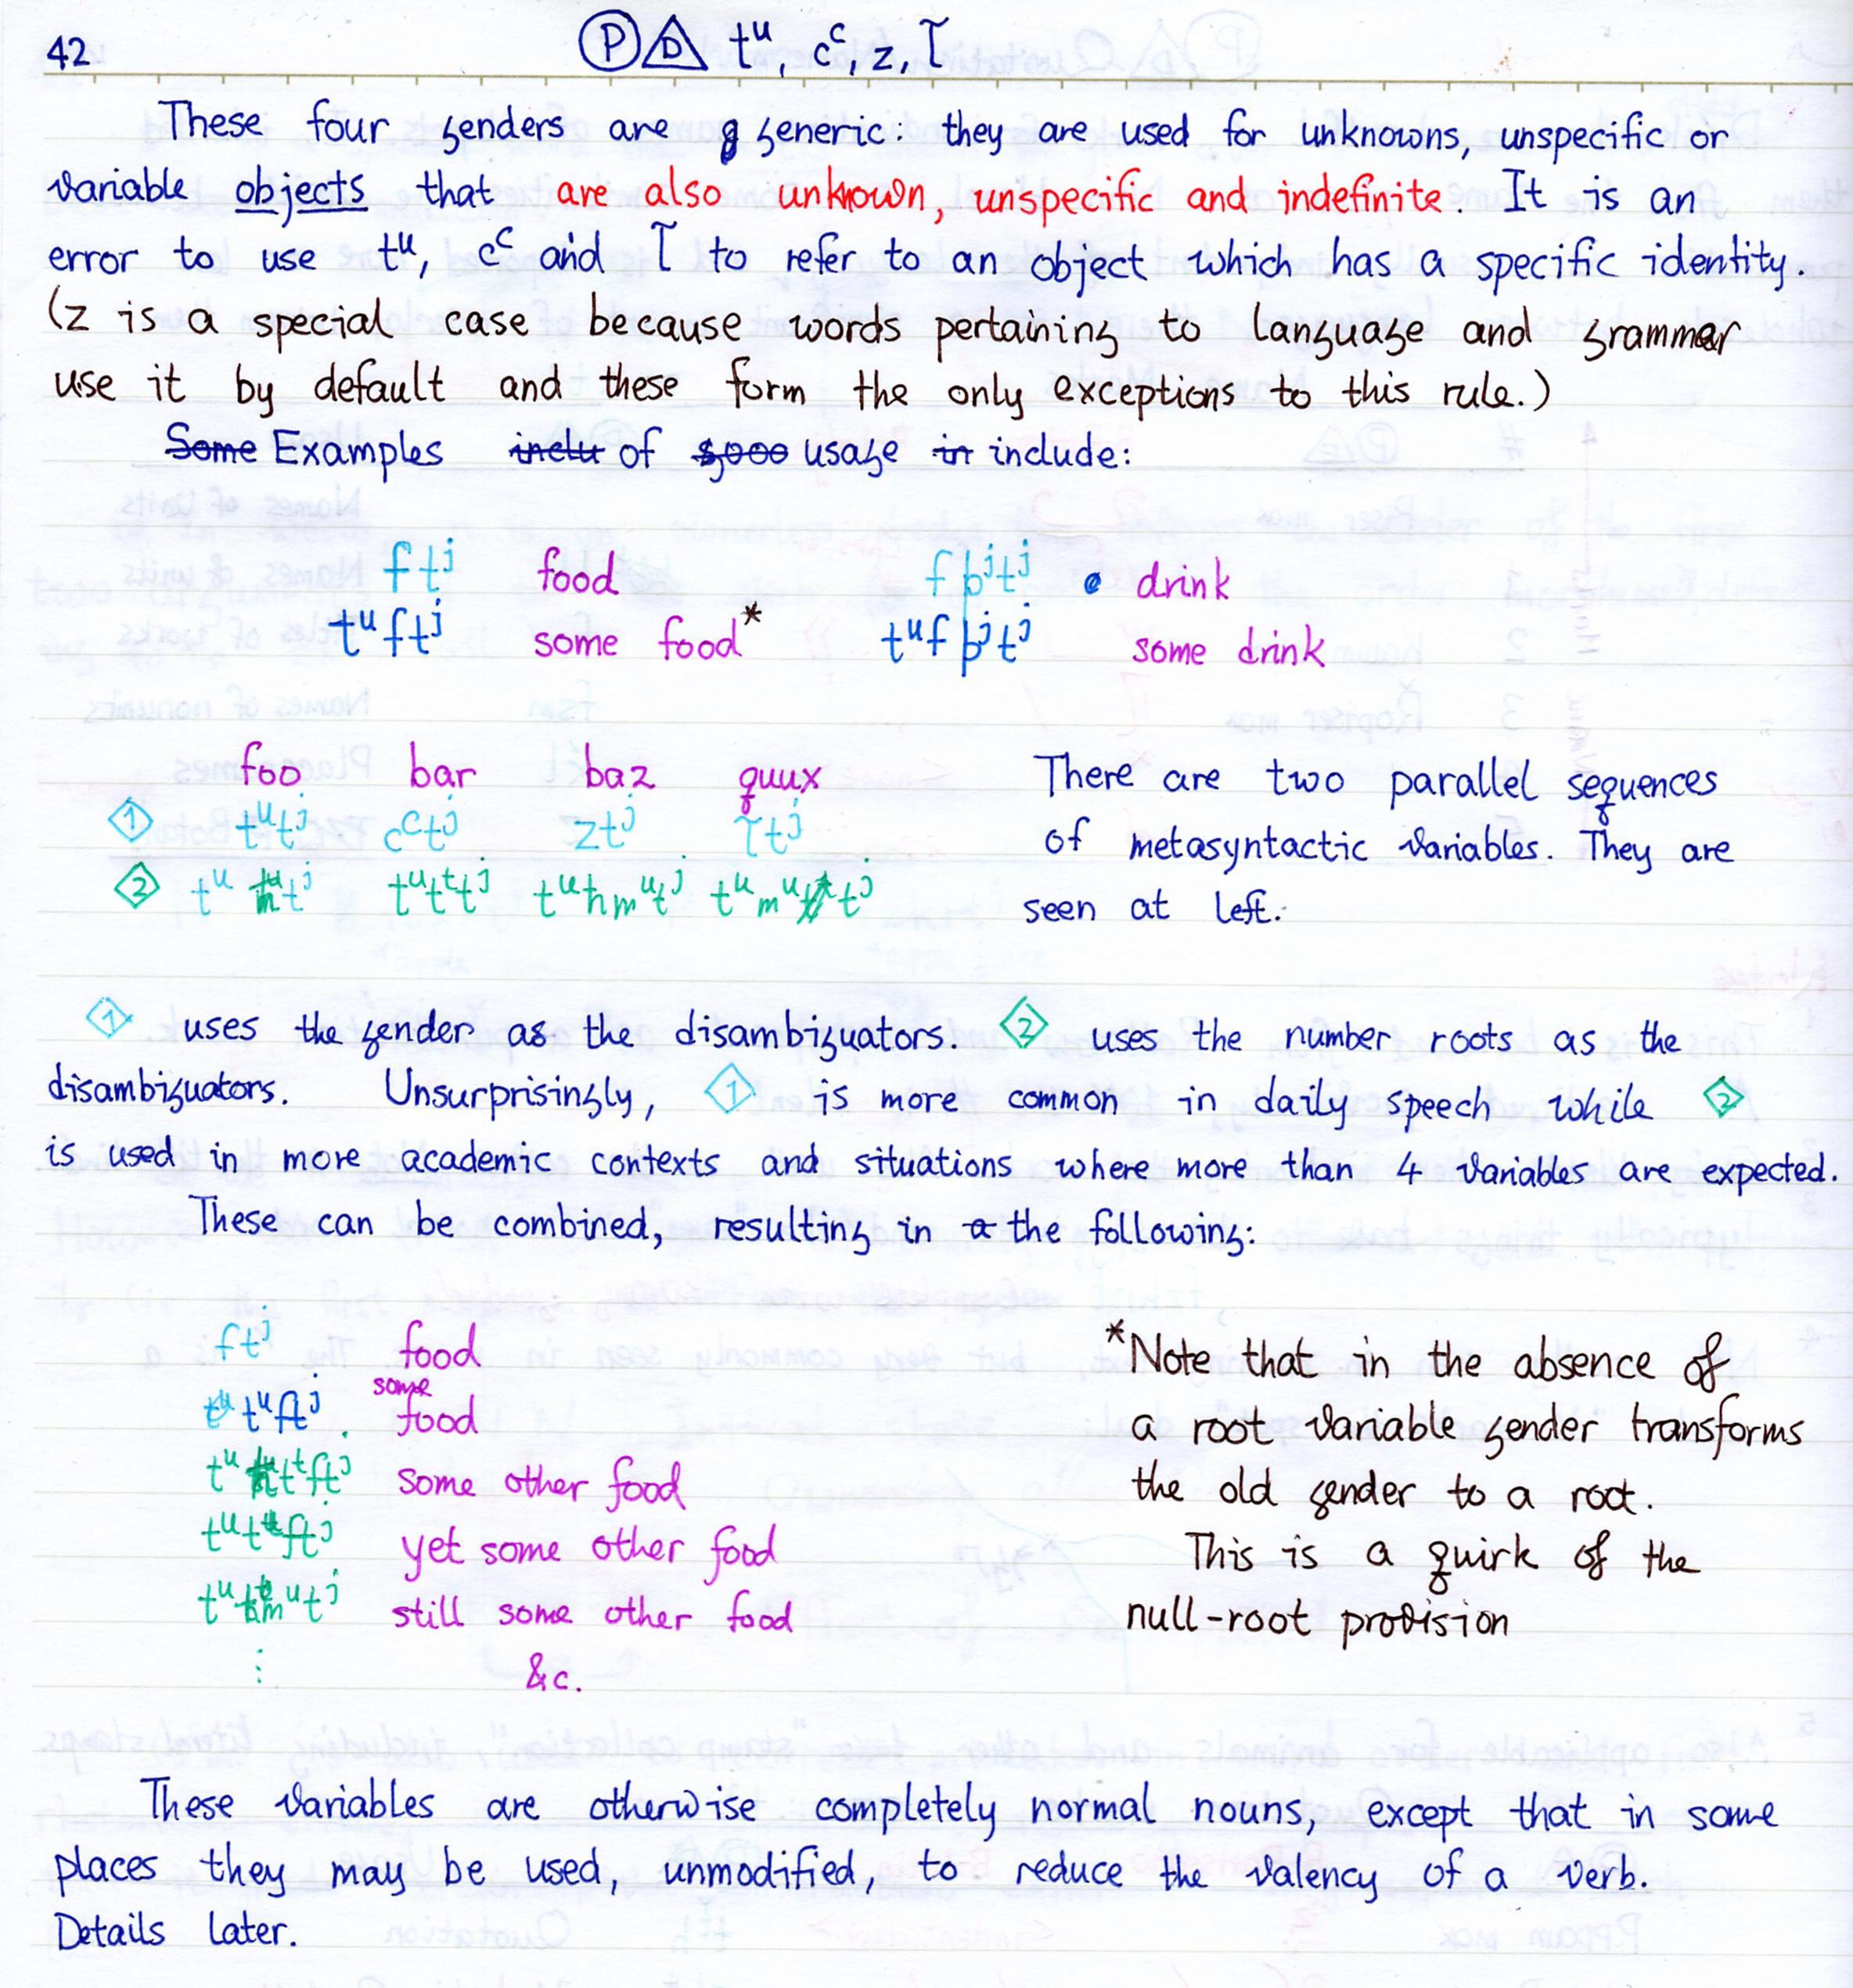 42 Ⓟ D tᵘ, cᶜ, z, ɽ
These four genders are generic: they are used for unknowns, unspecific or
variable objects that are also unknown, unspecific and indefinite. It is an
error to use tᵘ, cᶜ and to refer to an object which has a specific identity.
(z is a special case because words pertaining to language and grammar
use it by default and these form the only exceptions to this rule.)
Some Examples inclu of usage in include:
ftʲ food fþʲtʲ drink
tᵘftʲ some food* tᵘfþʲtʲ some drink
foo bar baz quux There are two parallel sequences
1 tᵘtʲ cᶜtʲ ztʲ of metasyntactic variables. They are
2 tᵘtᵗtʲ tᵘhmᵘtʲ seen at left.
1 uses the gender as the disambiguators. 2 uses the number roots as the
disambiguators. Unsurprisingly, 1 is more common in daily speech while 2
is used in more academic contexts and situations where more than 4 variables are expected.
These can be combined, resulting in a the following:
ftʲ food
tᵘftʲ some food
some other food
yet some other food
still some other food
⋮ &c.
*Note that in the absence of
a root variable gender transforms
the old gender to a root.
This is a quirk of the
null-root provision
These variables are otherwise completely normal nouns, except that in some
places they may be used, unmodified, to reduce the valency of a verb.
Details later.